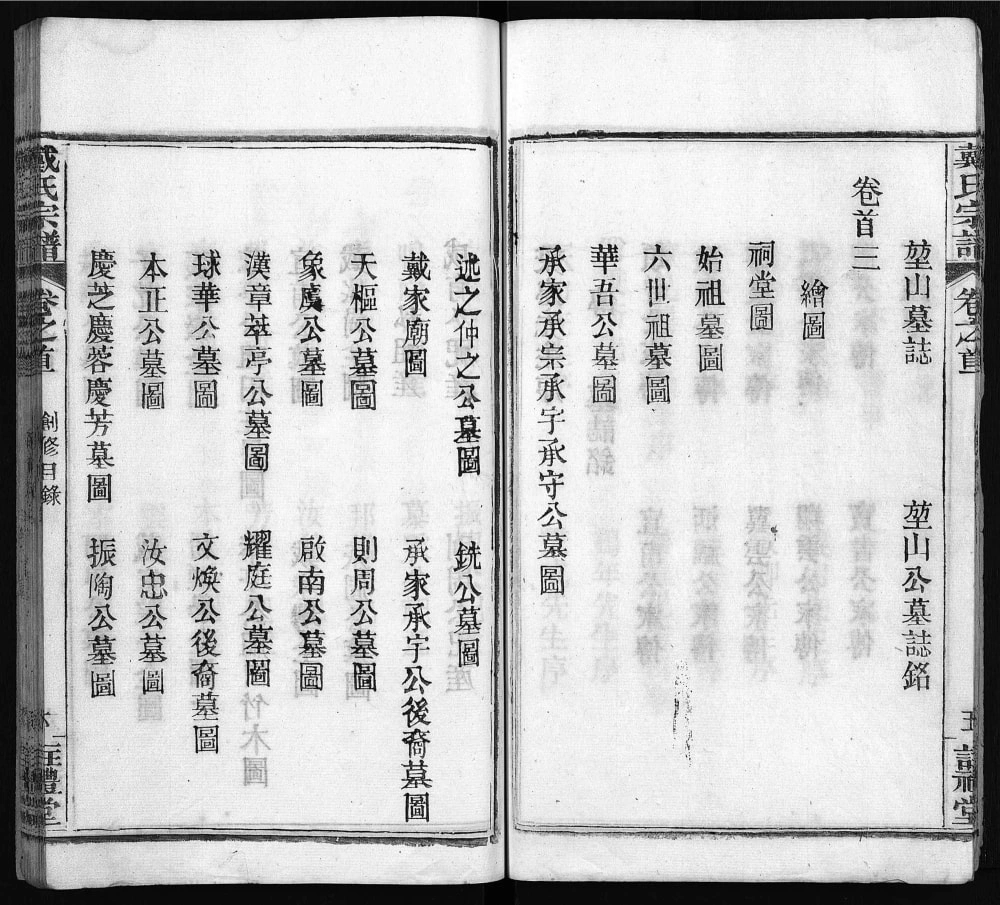 堃山墓誌 堃山公墓誌銘
卷首三
繪圖
祠堂圖
始祖墓圖
六世祖墓圖
華吾公墓圖
承家承宗承字承守公墓圖
述之仲之公墓圖 銑公墓圖
戴家廟圖 承家承宇公後裔墓圖
天樞公墓圖 則周公墓圖
象廣公墓圖 啟南公墓圖
漢章萃亭公墓圖 耀庭公墓圖
球華公墓圖 文煥公後裔墓圖
本正公墓圖 汝忠公墓圖
慶芝慶蓉慶芳墓圖 振陶公墓圖
戴氏宗譜 卷之首 創修目錄 六